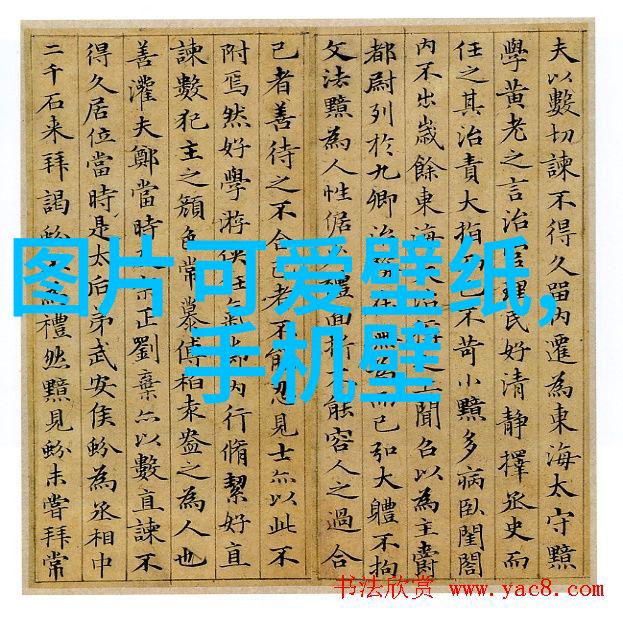 夫以數切諫不得久畱內遷為東海太守黯
學黃老之言治官理民好清静擇丞史而
任之其治責大指已不苛小黯多病臥閨閤
內不出歳餘東海治聞召以為主爵
都尉列於九卿治務在無為而已弘大軆不拘
文法黯為人性倨禮面折不能容人之過合
己者善待之不合己者不能忍見士亦以此不
附焉然好學游俠任氣節內行脩絜好直
諫數犯主之顔色常慕傅柏袁盎之為人也
善灌夫鄭當時宗正劉棄亦以數直諫不
得久居位當時是太后弟武安侯蚡為丞相中
二千石来拜謁蚡為禮然黯見蚡未嘗拜常
图片可爱壁纸,
手机壁
书法欣赏 www.yac8.com